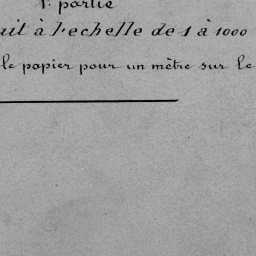 1. partie
uit à l'echelle de 1 à 1000
le papier pour un mètre sur le